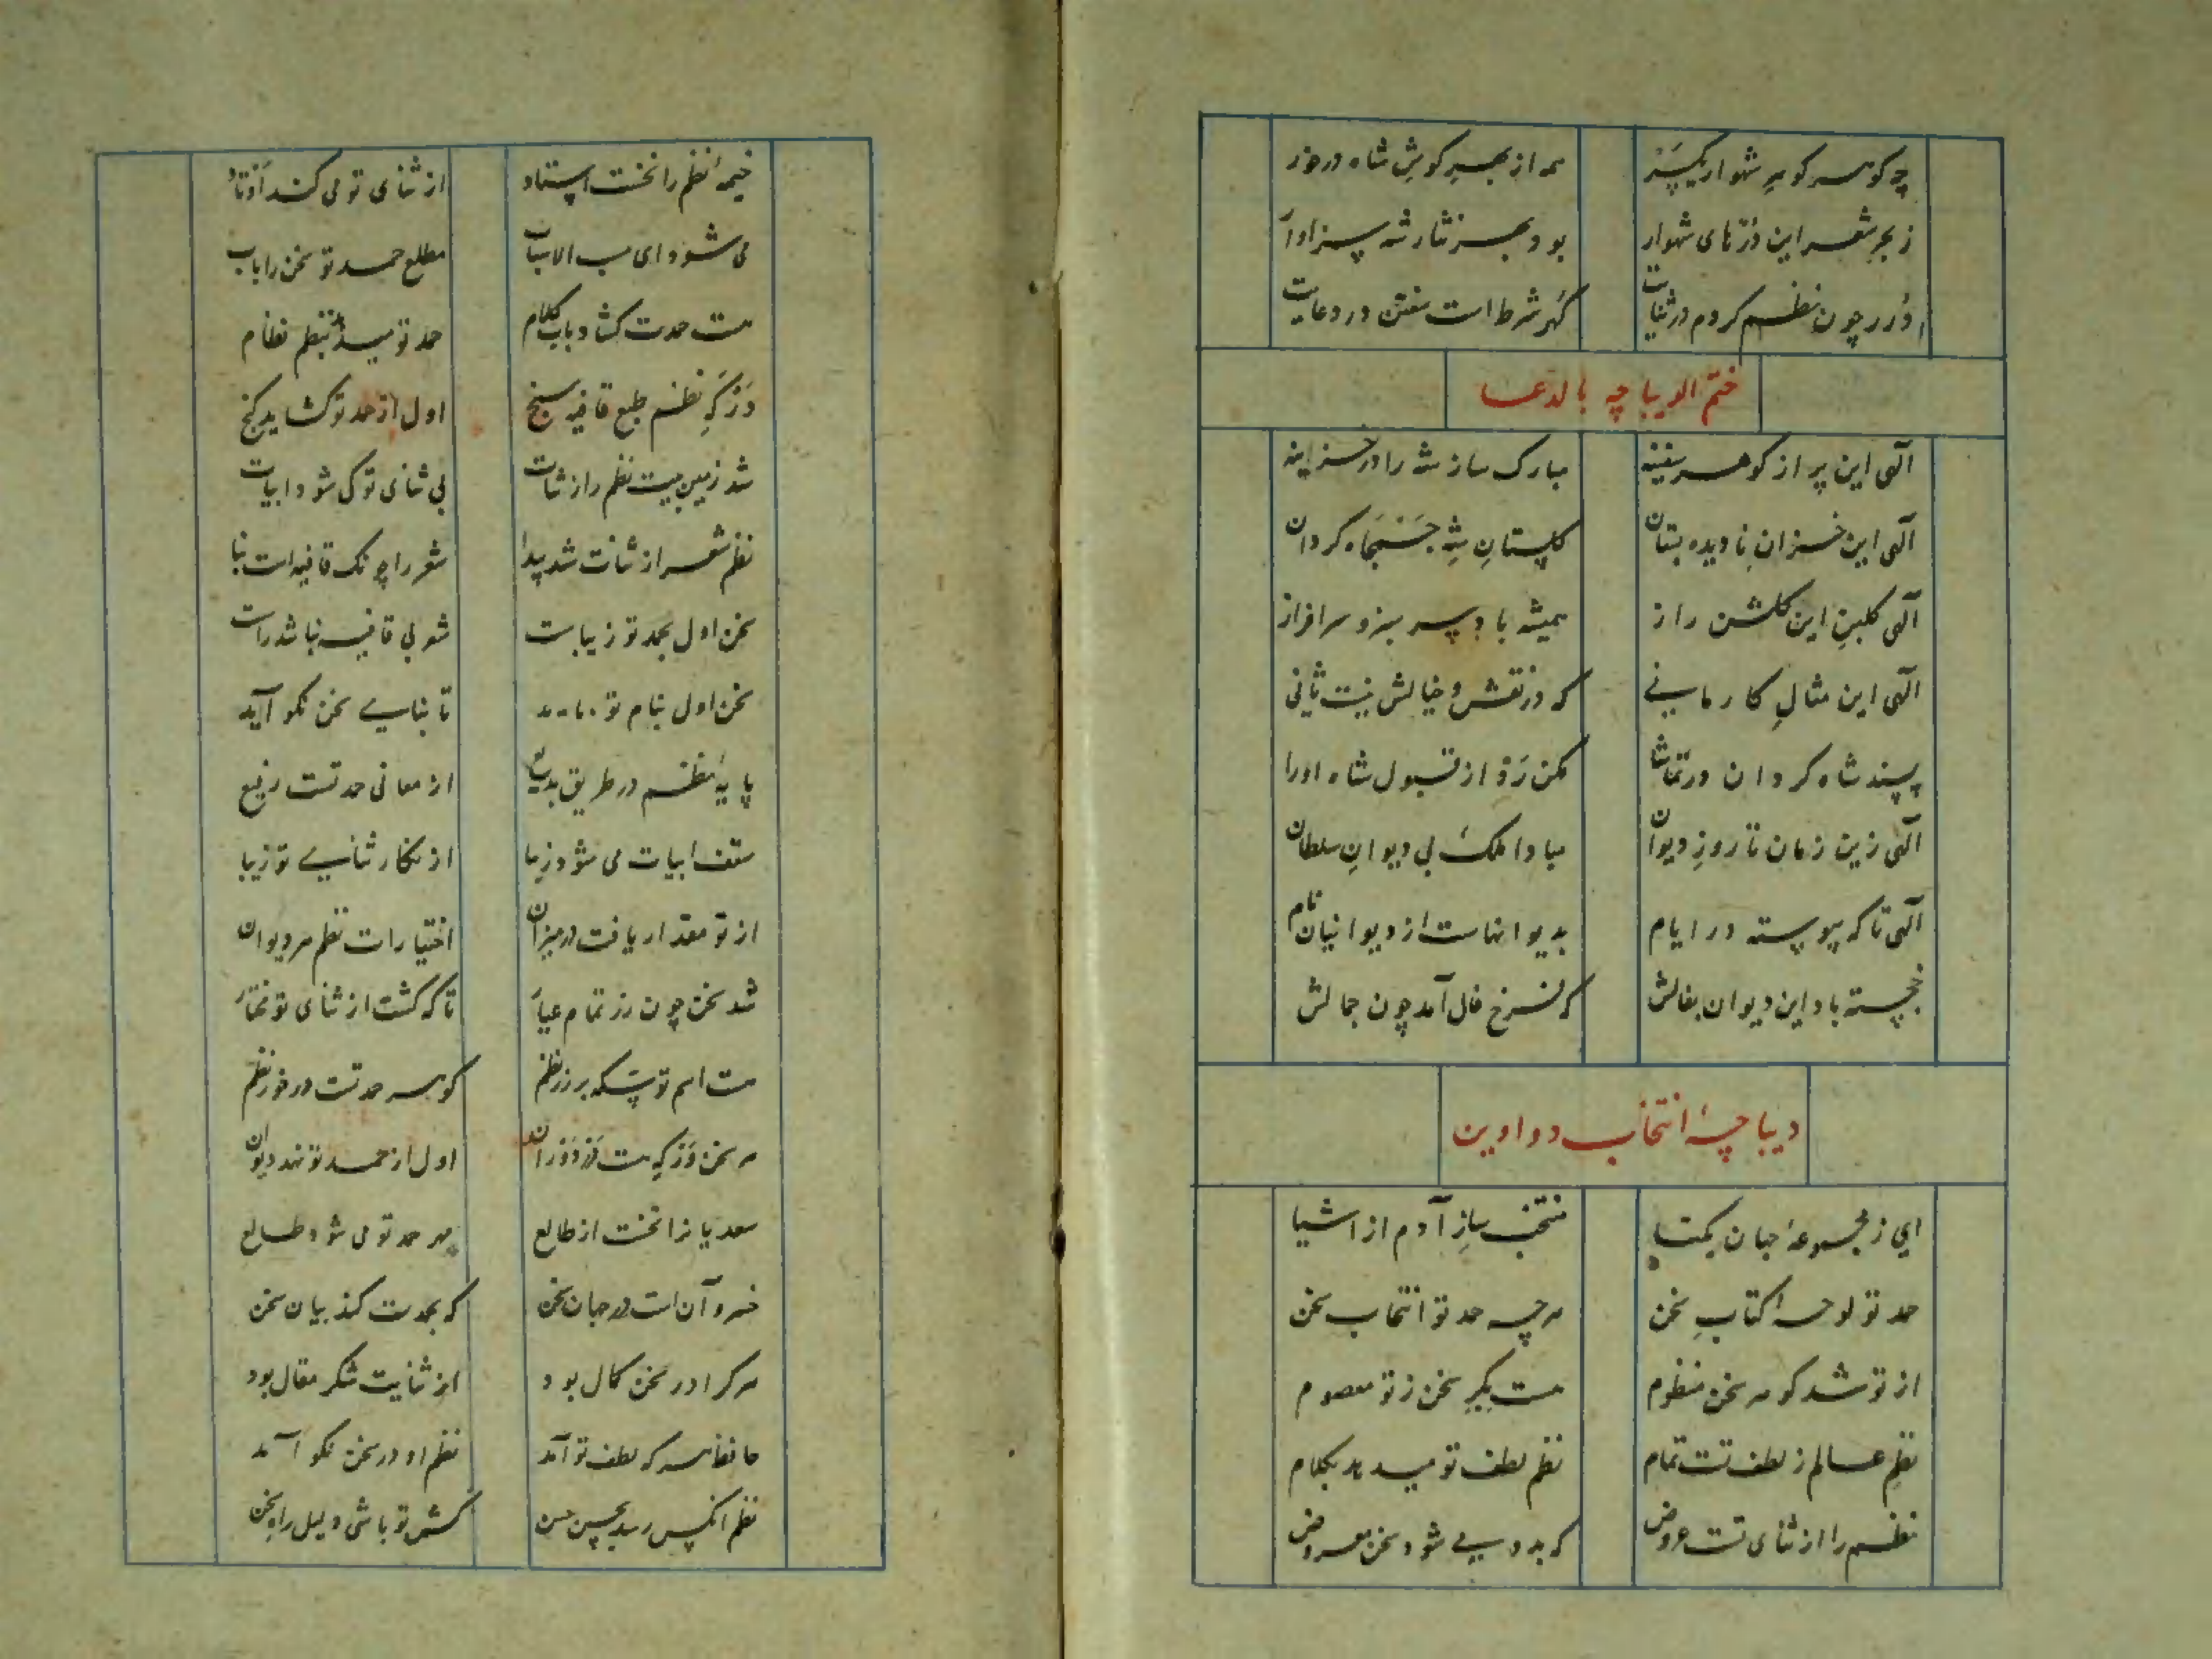 چه گوهر گوهر شهوار یکسر همه از بهر گوش شاه درخور
ز بحر شعر این درهای شهوار بود بهر نثار شه سزاوار
درر چون نظم کردم در ثنایت گهر شرط است سفتن در دعایت
ختم الدیباچه بالدعا
الهی این پر از گوهر سفینه مبارک ساز شه را در خزینه
الهی این خزان نادیده بستان گلستان شه جمجاه گردان
الهی گلبن این گلشن راز همیشه باد سرسبز و سرافراز
الهی این مثال کار مانی که در نقش و خیالش نیست ثانی
پسند شاه گردان در تماشا مکن رد از قبول شاه او را
الهی زین زمان تا روز دیوان مبادا ملک بی دیوان سلطان
الهی تا که پیوسته در ایام بدیوانهاست از دیوانیان نام
خجسته باد این دیوان بفالش که فرخ فال آمد چون جمالش
دیباچهٔ انتخاب دواوین
ای ز مجموعهٔ جهان یکتا منتخب ساز آدم از اشیا
حمد تو لوحهٔ کتاب سخن هر چه حمد تو انتخاب سخن
از تو شد گوهر سخن منظوم هست بکر سخن ز تو معصوم
نظم عالم ز لطف تست تمام نظم لطف تو میدهد بکلام
نظم را از ثنای تست عروض که بدو می شود سخن معروض
خیمهٔ نظم را نخست استاد از ثنای تو می کند اوتاد
می شود ای مسبب الاسباب مطلع حمد تو سخن را باب
هست حمدت گشاد باب کلام حمد تو میدهد بنظم نظام
در گه نظم طبع قافیه سنج اول از حمد تو گشاید گنج
شد زمین بیت نظم را ز ثنات بی ثنای تو کی شود ابیات
نظم شعر از ثنات شد پیدا شعر را چونک قافیه است بنا
سخن اول بحمد تو زیباست شعر بی قافیه نباشد راست
سخن اول بنام تو تا بنای سخن نکو آید
پایهٔ نظم در طریق بدیع از معانی حمد تست رفیع
سقف ابیات می شود زیبا از نگار ثنای تو زیبا
از تو مقدار یافت در میزان اختیارات نظم هر دیوان
شد سخن چون زر تمام عیار تا که گشت از ثنای تو مختار
هست اسم تو سکه بر زر نظم گوهر حمد تست درخور نظم
هر سخن ور که هست اول از حمد تو نهد دیوان
سعد یابد نخست از طالع مهر حمد تو می شود طالع
خسرو آن است در جهان سخن که بحمدت کند بیان سخن
هر که را در سخن کمال بود از ثنایت شکر مقال بود
حافظا هر که لطف تو آمد نظم او در سخن نکو آمد
نظم آنکس رسد بحسن حسن کش تو باشی دلیل راه سخن